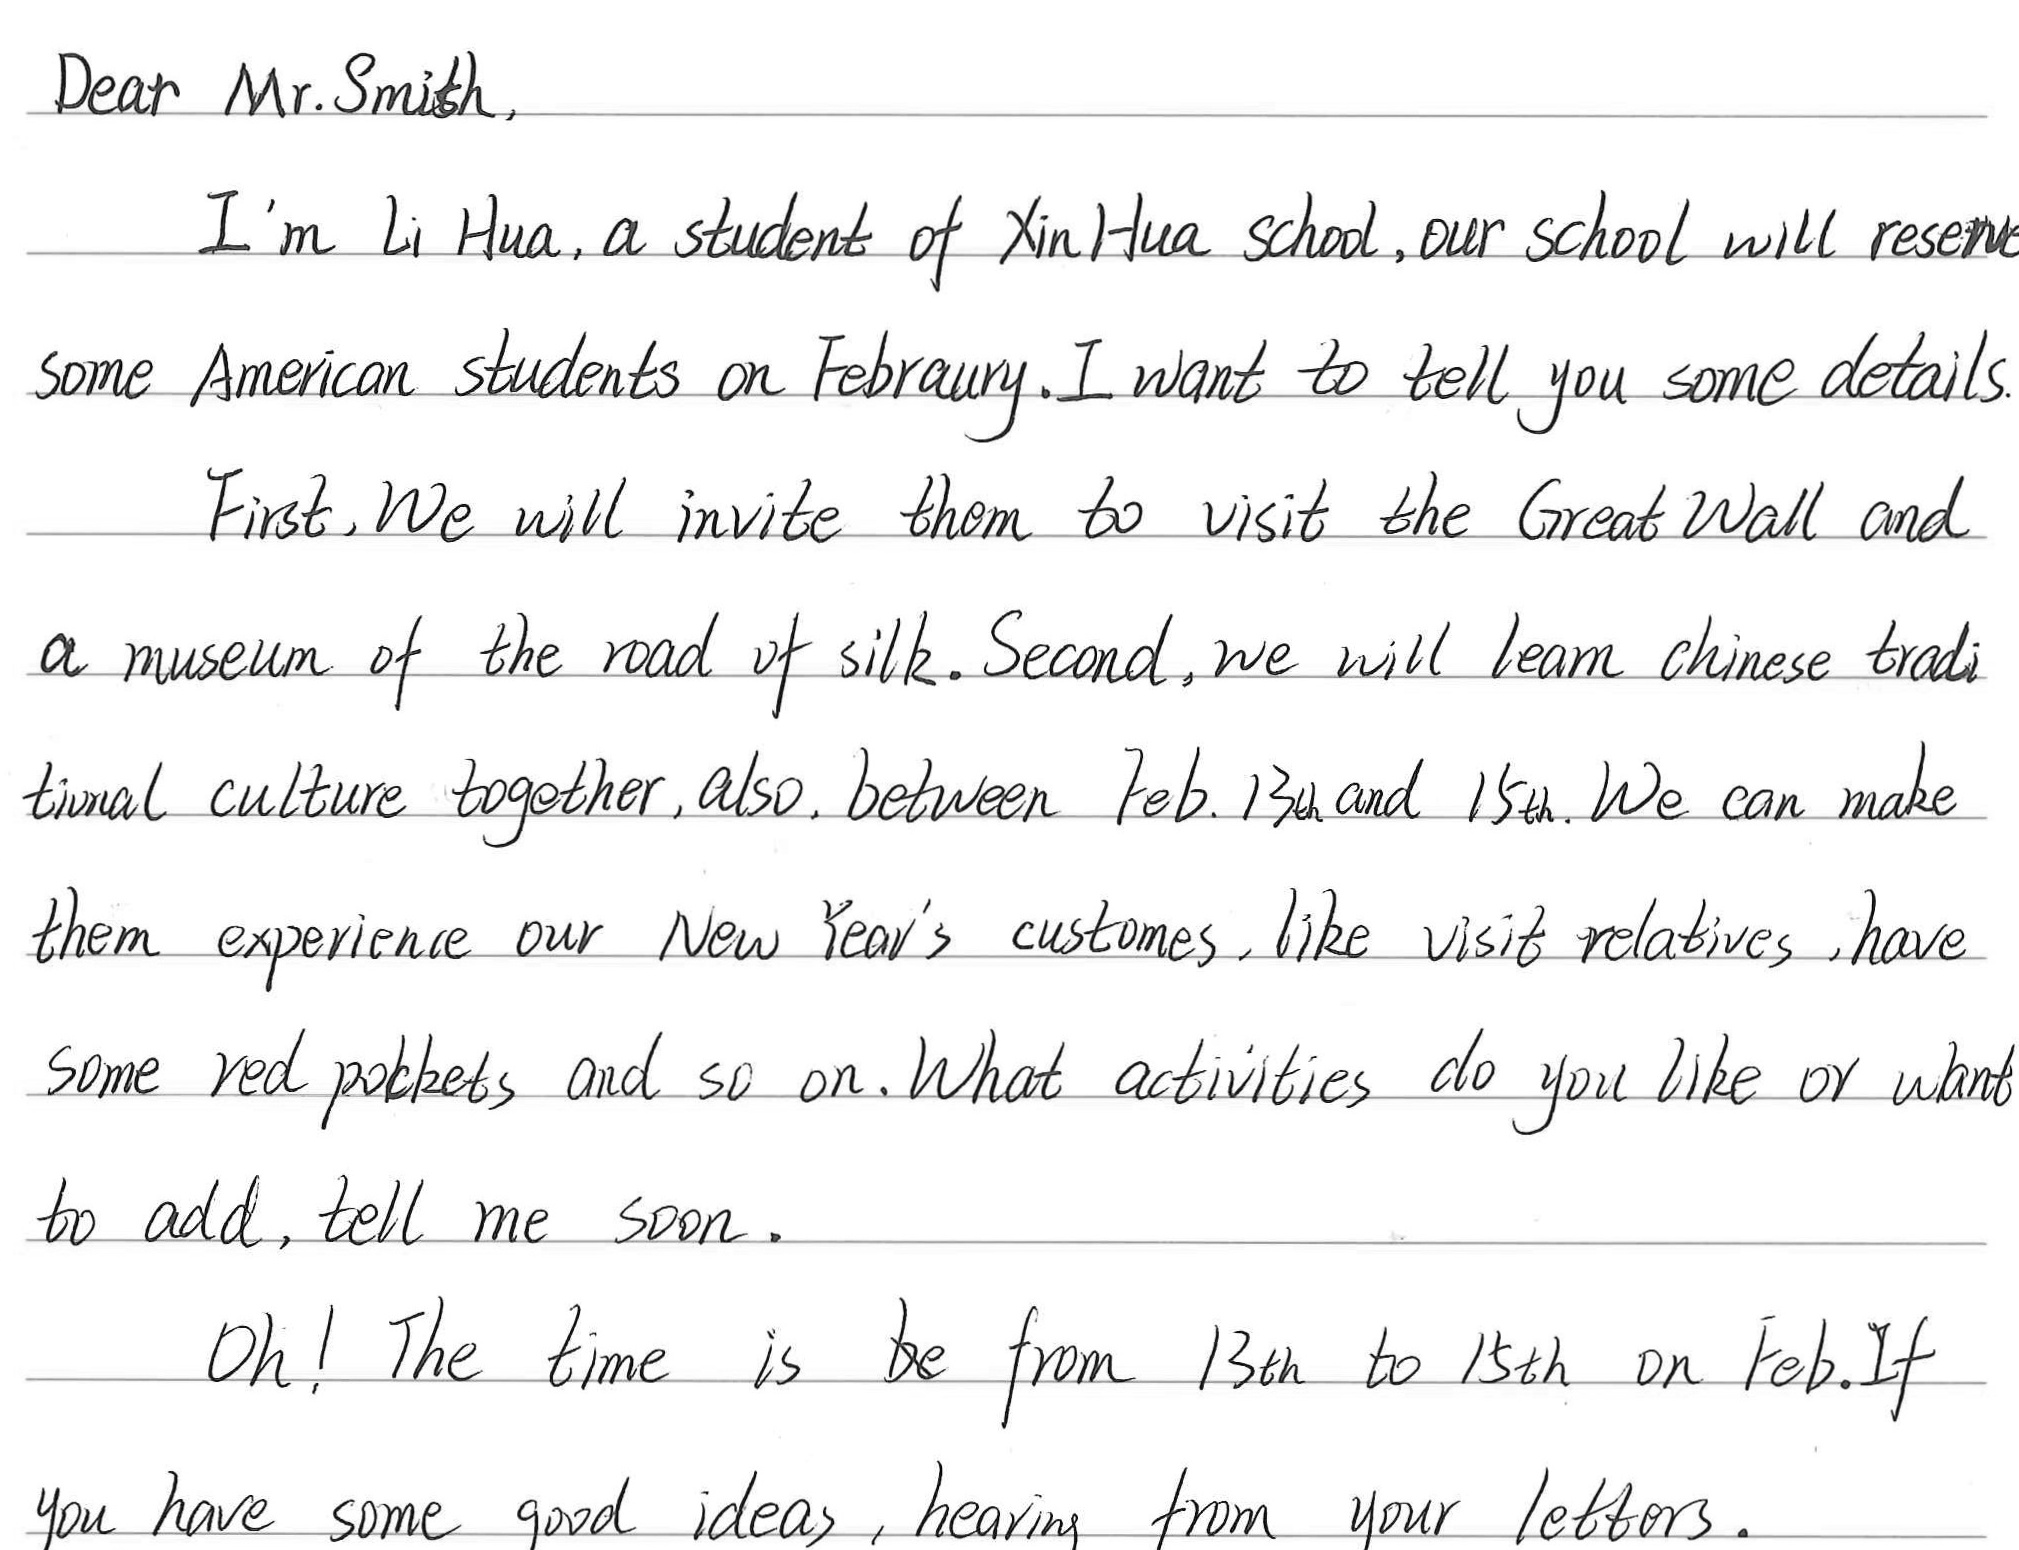 Dear Mr. Smith,
I'm Li Hua, a student of XinHua school, our school will reserve
some American students on Febraury. I want to tell you some details.
First, We will invite them to visit the Great Wall and
a museum of the road of silk. Second, we will learn chinese tradi
tional culture together, also, between Feb. 13th and 15th. We can make
them experience our New Year's customes, like visit relatives, have
some red pockets and so on. What activities do you like or want
to add, tell me soon.
Oh! The time is be from 13th to 15th on Feb. If
you have some good ideas, hearing from your letters.